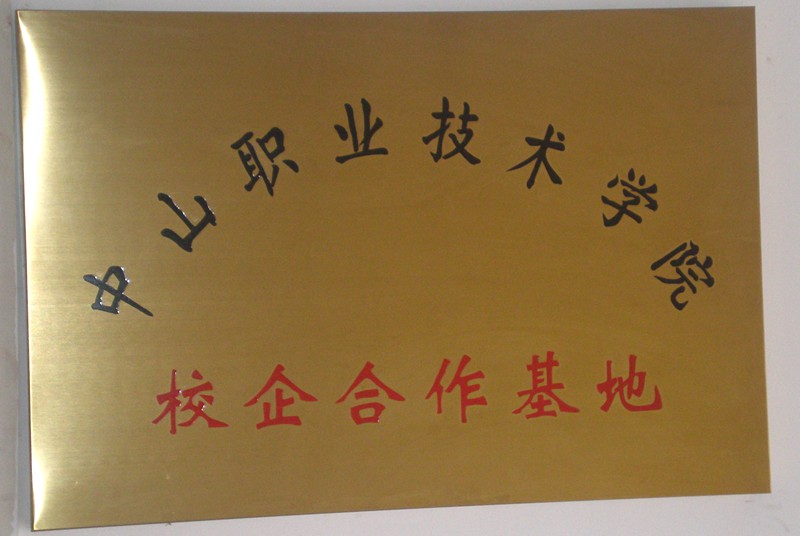 中山职业技术学院
校企合作基地